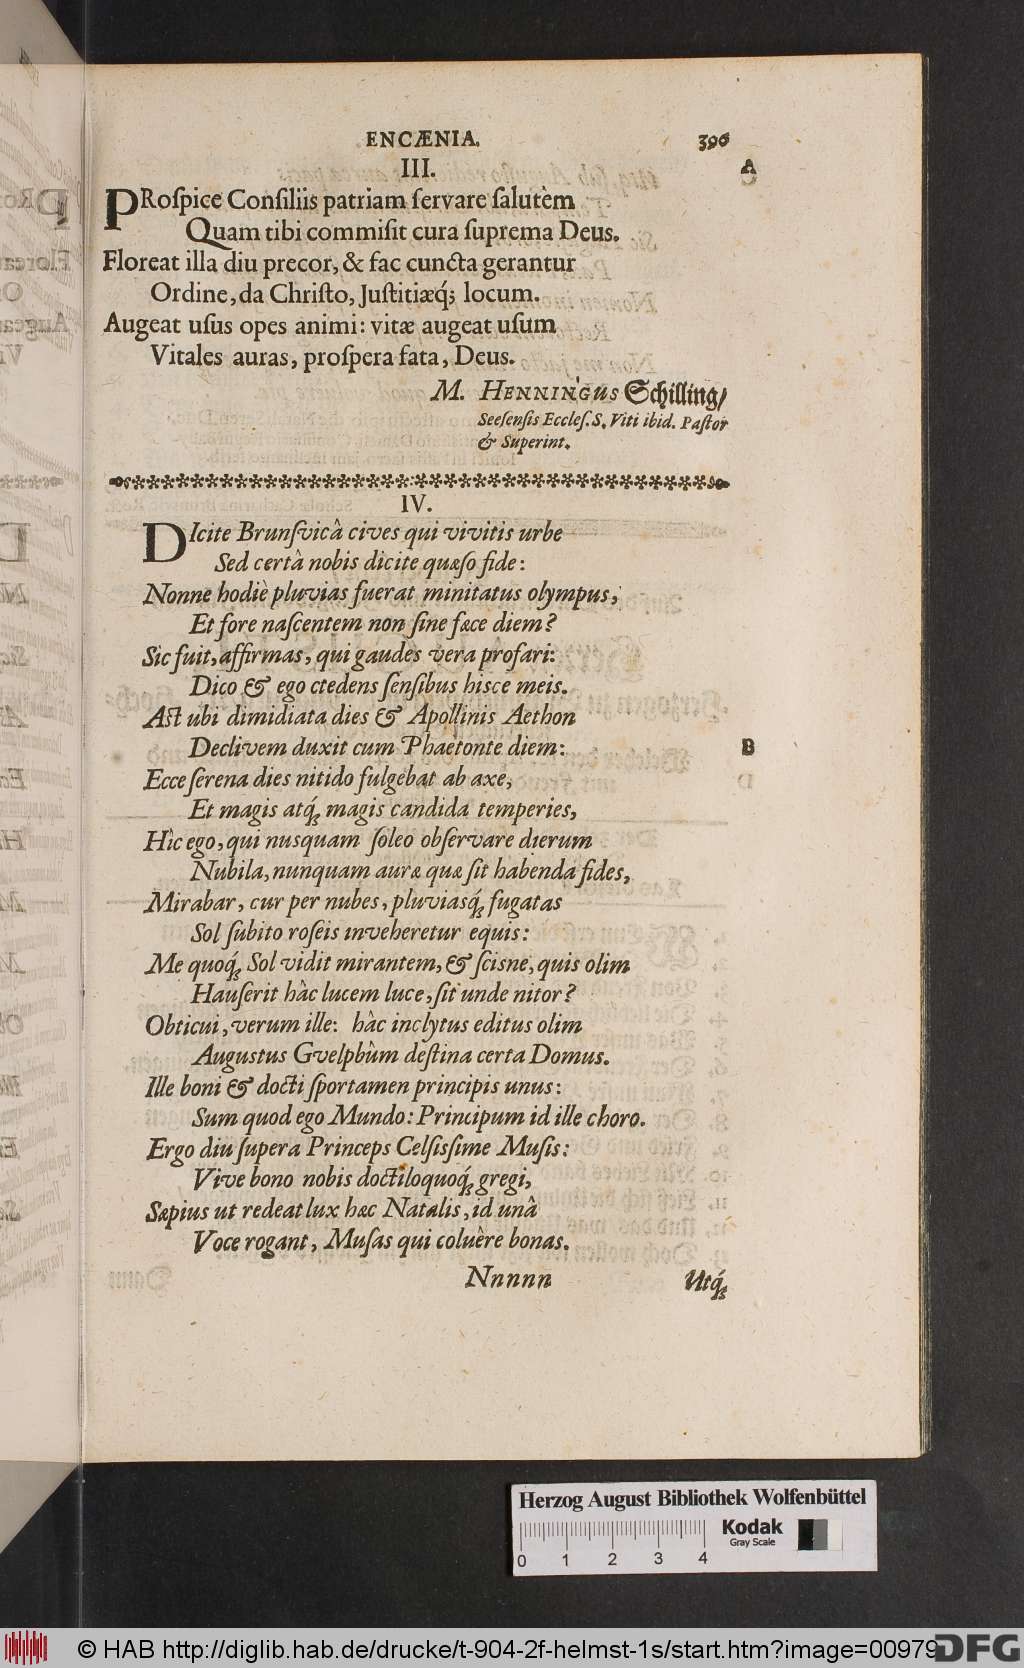 ENCÆNIA. 396
III. A
PRoſpice Conſiliis patriam ſervare ſalutèm
Quam tibi commiſit cura ſuprema Deus.
Floreat illa diu precor, & fac cuncta gerantur
Ordine, da Chriſto, Juſtitiæq́; locum.
Augeat uſus opes animi: vitæ augeat uſum
Vitales auras, proſpera fata, Deus.
M. HENNINGUS Schilling/
Seeſenſis Eccleſ. S. Viti ibid. Paſtor
& Superint.
IV.
DIcite Brunſvicâ cives qui vivitis urbe
Sed certâ nobis dicite quæſo fide:
Nonne hodiè pluvias fuerat minitatus olympus,
Et fore naſcentem non ſine fæce diem?
Sic fuit, affirmas, qui gaudes vera profari:
Dico & ego ctedens ſenſibus hisce meis.
Aſt ubi dimidiata dies & Apollinis Aethon
Declivem duxit cum Phaetonte diem: B
Ecce ſerena dies nitido fulgebat ab axe,
Et magis atq́; magis candida temperies,
Hìc ego, qui nusquam ſoleo obſervare dierum
Nubila, nunquam auræ quæ ſit habenda fides,
Mirabar, cur per nubes, pluviasq́; fugatas
Sol ſubito roſeis inveheretur equis:
Me quoq́; Sol vidit mirantem, & ſcisne, quis olim
Hauſerit hàc lucem luce, ſit unde nitor?
Obticui, verum ille: hàc inclytus editus olim
Auguſtus Gvelphûm deſtina certa Domus.
Ille boni & docti ſportamen principis unus:
Sum quod ego Mundo: Principum id ille choro.
Ergo diu ſupera Princeps Celſisſime Muſis:
Vive bono nobis doctiloquoq́; gregi,
Sæpius ut redeat lux hæc Natalis, id unâ
Voce rogant, Muſas qui coluère bonas.
Nnnnn Utq́;
Herzog August Bibliothek Wolfenbüttel
Kodak
Gray Scale
0 1 2 3 4
© HAB http://diglib.hab.de/drucke/t-904-2f-helmst-1s/start.htm?image=00979
DFG